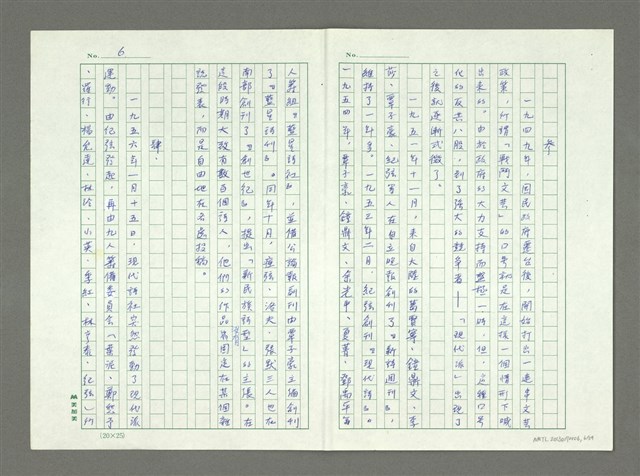 No.
參、
一九四九年,國民政府遷台後,開始打出一連串文藝
政策,所謂「戰鬥文藝」的口號初是在這樣一個情形下喊
出來的。由於政府的大力支持而盛極一時,但,這種口號
化的反共八股,到了強大的競爭者——「現代派」出現了
之後就逐漸式微了。
一九五一年十一月,來自大陸的葛賢寧、鍾鼎文、李
莎、覃子豪、紀弦等人在自立晚報創刊了「新詩週刊」,
維持了一年多。一九五三年二月,紀弦創刊了『現代詩』。
一九五四年,覃子豪、鍾鼎文、余光中、夏菁、鄧禹平等
No. 6
人籌組「藍星詩社」,並借公論報副刊由覃子豪主編創刊
了『藍星詩刊』。同年十月,瘂弦、洛夫、張默三人也在
南部創刊了『創世紀』,提出「新民族詩型」的主張。在
這段時期大致有數百個詩人,他們的作品沒有固定在某個雜
誌發表,而是自由地在各處投稿。
肆、
一九五六年一月十五日,現代詩社突然發動了現代派
運動。由紀弦發起,再由九人籌備委員會(葉泥、鄭愁予
、羅行、楊允達、林泠、小英、季紅、林亨泰、紀弦)所
(20×25)